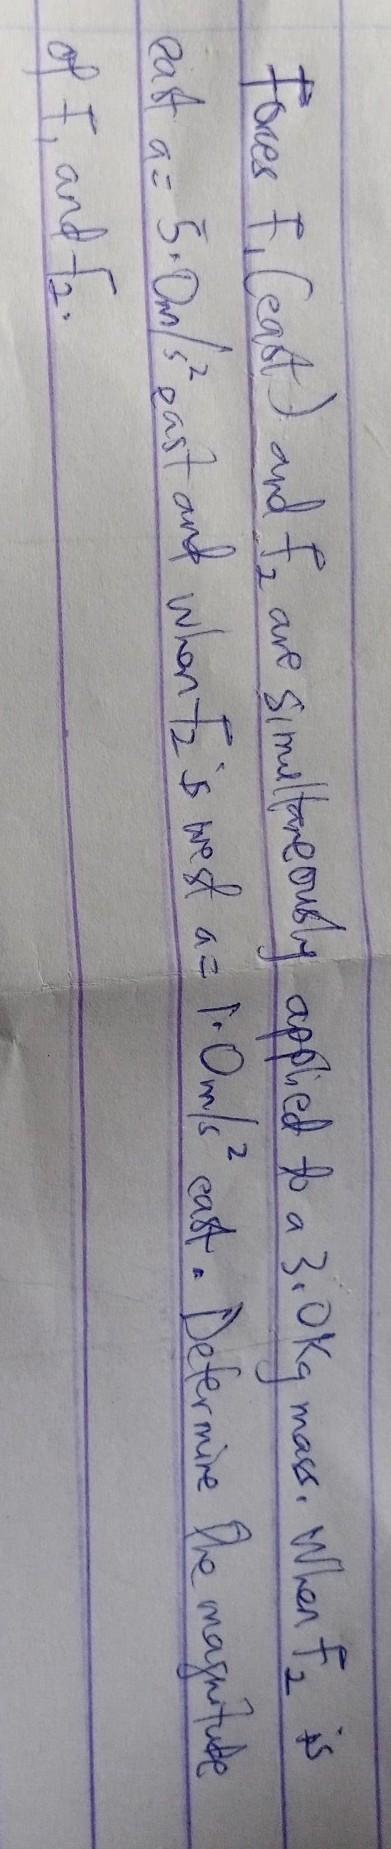 Forces F₁ (east) and F₂ are simultaneously applied to a 3.0Kg mass. When F₂ is
east a = 5.0m/s² east and when F₂ is west a = 1.0m/s² east. Determine the magnitude
of F₁ and F₂.